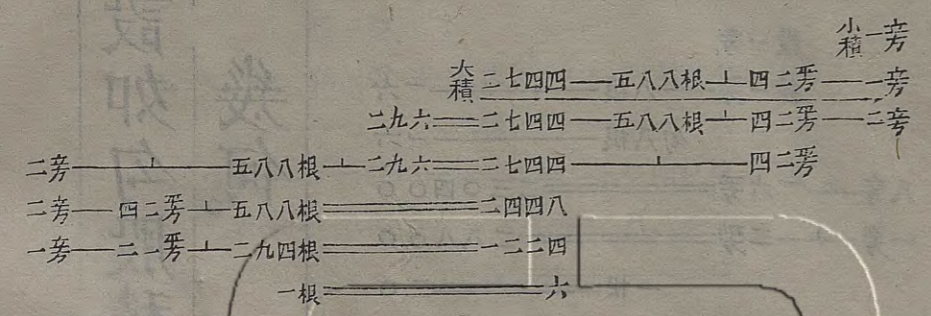 小積 一立方
大積 二七四四—五八八根⊥四二平方—一立方
二九六═二七四四—五八八根⊥四二平方—二立方
二立方⊥五八八根⊥二九六═二七四四⊥四二平方
二立方—四二平方⊥五八八根═二四四八
一立方—二一平方⊥二九四根═一二二四
一根═六